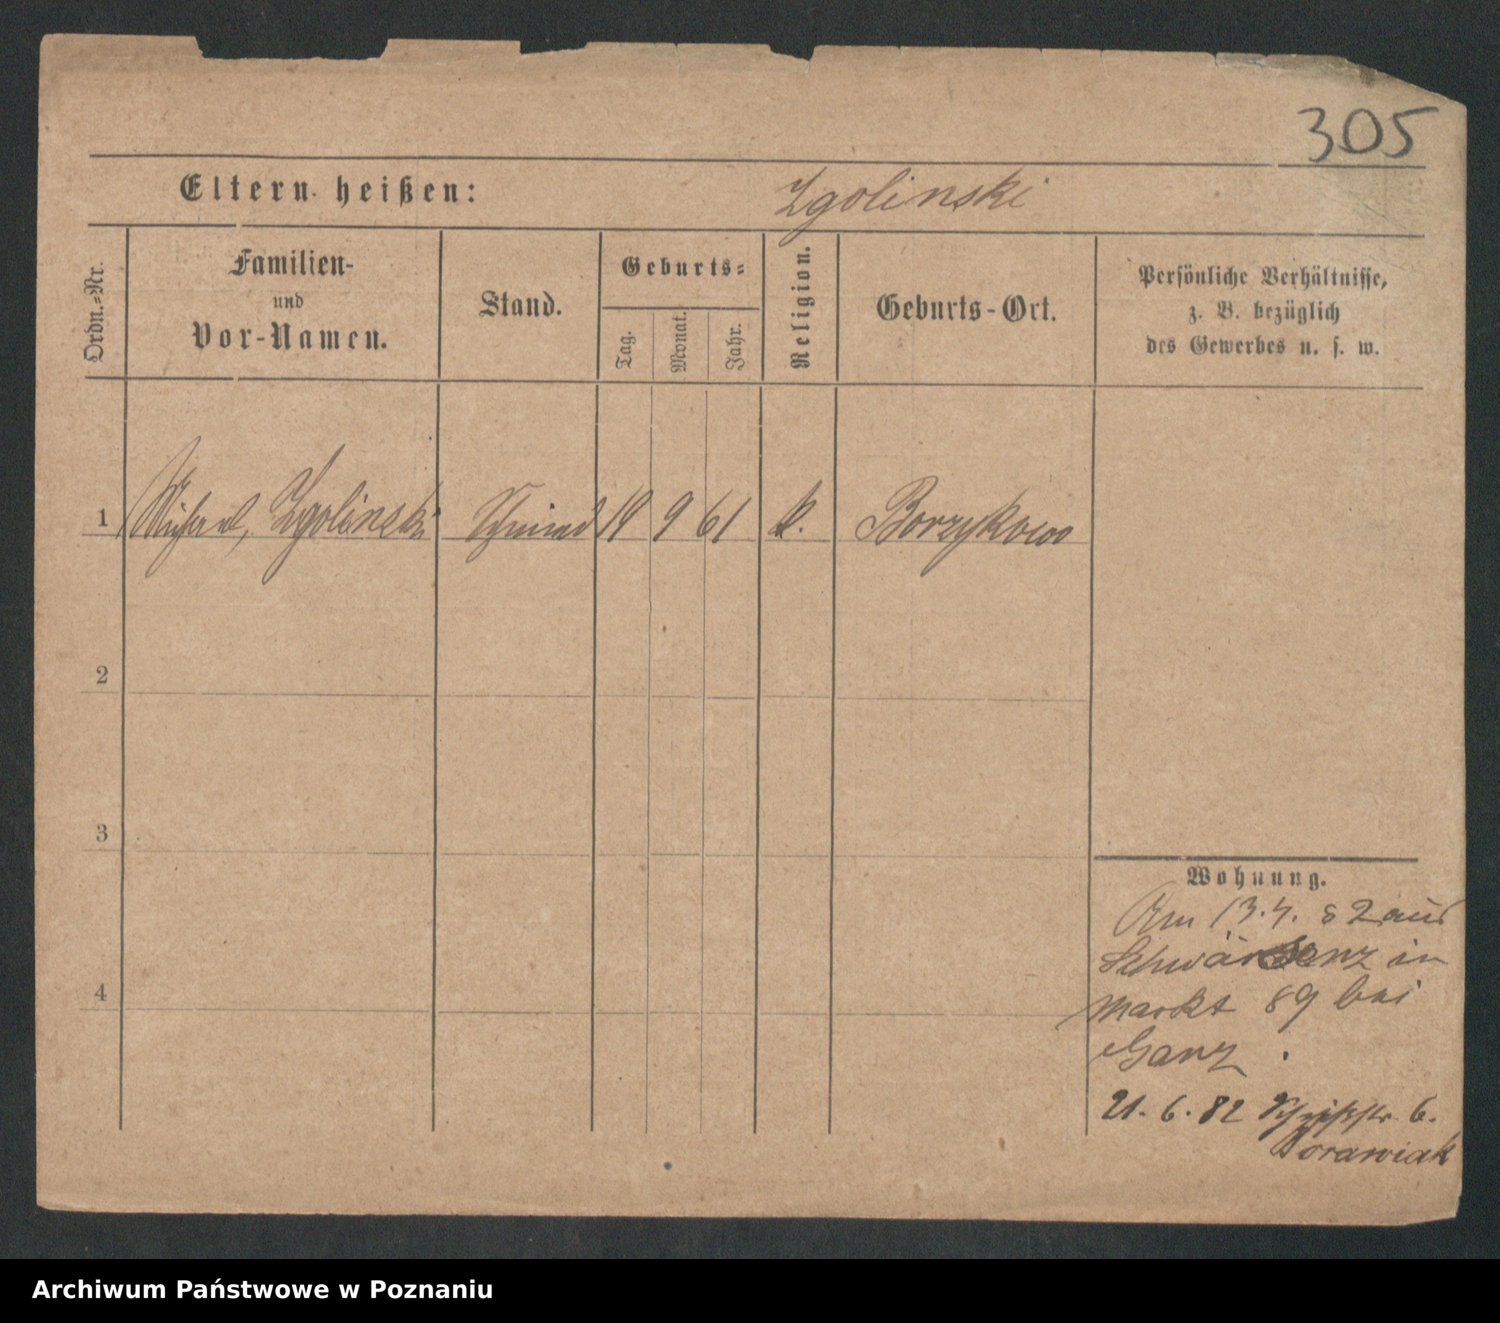 305
Eltern heißen: Zgolinski
Ordn.-Nr.
Familien-
und
Vor-Namen.
Stand.
Geburts-
Tag.
Monat.
Jahr.
Religion.
Geburts-Ort.
Persönliche Verhältnisse,
z. B. bezüglich
des Gewerbes u. s. w.
1 Michael, Zgolinski Schmied 19 9 61 k. Borzykowo
2
3
4
Wohnung.
Am 13.4.82 aus
Schwersenz in
Markt 89 bei
Ganz.
21.6.82 6.
Porawiak
Archiwum Państwowe w Poznaniu